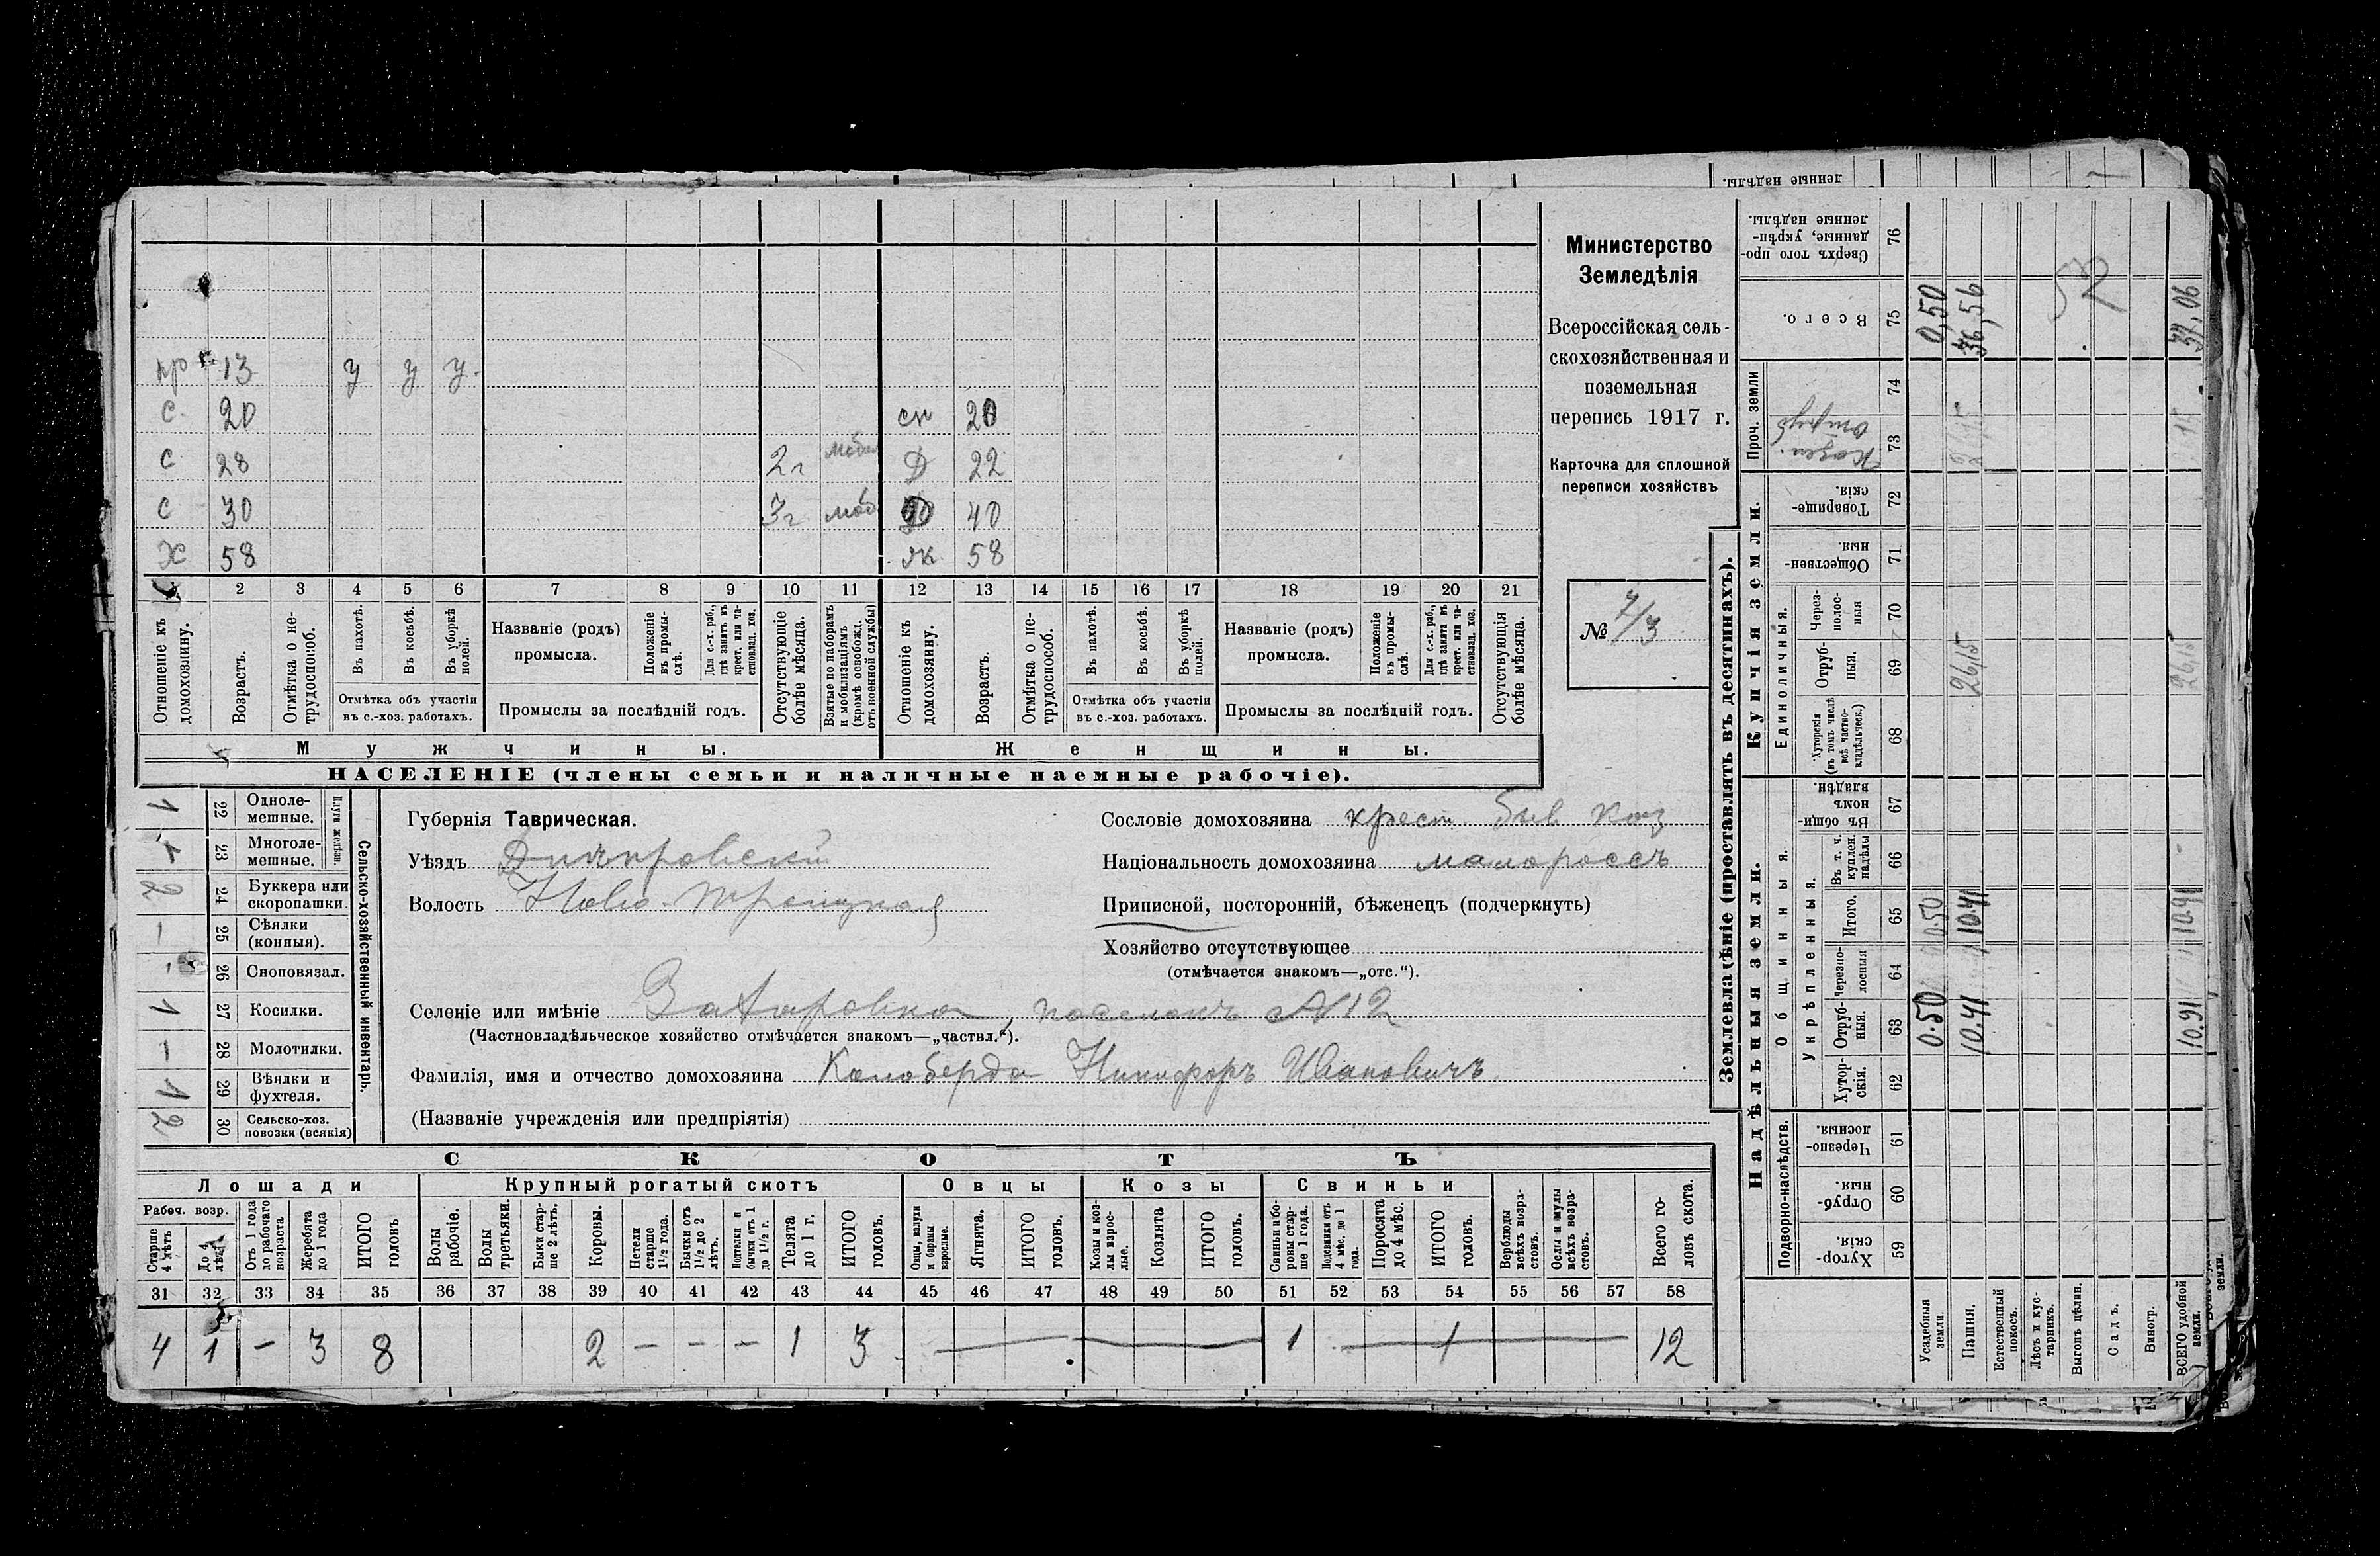 денные надѣлы.
Министерство
Земледѣлія
Всероссійская сель-
скохозяйственная и
поземельная
перепись 1917 г.
Карточка для сплошной
переписи хозяйствъ
№ 7/3
пр 13 у у у
с 20 сн 20
с 28 2 г моб Д 22
с 30 3 г моб 40
Х 58 жк 58
2 3 4 5 6 7 8 9 10 11 12 13 14 15 16 17 18 19 20 21
Отношеніе къ домохозяину.
Возрастъ.
Отмѣтка о не-трудоспособ.
Въ пахотѣ.
Въ косьбѣ.
Въ уборкѣ полей.
Отмѣтка объ участіи
въ с.-хоз. работахъ.
Названіе (родъ)
промысла.
Положеніе въ промы-слѣ.
Для с.-х. раб., гдѣ занятъ въ крест. или ча-стновлад. хоз.
Промыслы за послѣдній годъ.
Отсутствующіе болѣе мѣсяца.
Взятые по наборамъ и мобилизаціямъ (кромѣ освобожд. отъ военной службы)
Отношеніе къ домохозяину.
Возрастъ.
Отмѣтка о не-трудоспособ.
Въ пахотѣ.
Въ косьбѣ.
Въ уборкѣ полей.
Отмѣтка объ участіи
въ с.-хоз. работахъ.
Названіе (родъ)
промысла.
Положеніе въ промы-слѣ.
Для с.-х. раб., гдѣ занята въ крест. или ча-стновлад. хоз.
Промыслы за послѣдній годъ.
Отсутствующія болѣе мѣсяца.
Мужчины. Женщины.
НАСЕЛЕНІЕ (члены семьи и наличные наемные рабочіе).
Сельско-хозяйственный инвентарь.
Плуга желѣзн.
1 22 Одноле-мешные.
1 23 Многоле-мешные.
2 24 Буккера или скоропашки.
– 25 Сѣялки (конныя).
- 26 Сноповязал.
1 27 Косилки.
– 28 Молотилки.
1 29 Вѣялки и фухтеля.
2 30 Сельско-хоз. повозки (всякія)
Губернія Таврическая.
Уѣздъ Днѣпровскій
Волость Ново-Троицкая
Сословіе домохозяина крест быв каз
Національность домохозяина малороссъ
Приписной, посторонній, бѣженецъ (подчеркнуть)
Хозяйство отсутствующее
(отмѣчается знакомъ—„отс.“).
Селеніе или имѣніе Захаровка, поселокъ №12
(Частновладѣльческое хозяйство отмѣчается знакомъ—„частвл.“).
Фамилія, имя и отчество домохозяина Калаберда Никифоръ Ивановичъ
(Названіе учрежденія или предпріятія)
СКОТЪ
Лошади Крупный рогатый скотъ Овцы Козы Свиньи
Рабоч. возр.
Старше 4 лѣтъ
До 4 лѣтъ
Отъ 1 года до рабочаго возраста
Жеребята до 1 года
ИТОГО головъ
Волы рабочіе.
Волы третьяки.
Быки стар-ше 2 лѣтъ.
Коровы.
Нетели старше 1½ года.
Бычки отъ 1½ до 2 лѣтъ.
Подтелки и бычки отъ 1 до 1½ г.
Телята до 1 г.
ИТОГО головъ.
Овцы, валухи и бараны взрослые.
Ягнята.
ИТОГО головъ.
Козы и коз-лы взрос-лые.
Козлята
ИТОГО головъ.
Свиньи и бо-ровы стар-ше 1 года.
Подсвинки отъ 4 мѣс. до 1 года.
Поросята до 4 мѣс.
ИТОГО головъ.
Верблюды всѣхъ возра-стовъ.
Ослы и мулы всѣхъ возра-стовъ.
Всего го-ловъ скота.
31 32 33 34 35 36 37 38 39 40 41 42 43 44 45 46 47 48 49 50 51 52 53 54 55 56 57 58
4 1 – 3 8 2 – – – 1 3 1 1 12
Землевладѣніе (проставлять въ десятинахъ).
Надѣльныя земли. Купчія земли. Проч. земли
Подворно-наслѣдств. Общинныя. Единоличныя.
Укрѣпленныя.
Хутор-скія. 59
Отруб-ныя. 60
Черезпо-лосныя 61
Хутор-скія. 62
Отруб-ныя. 63
Черезпо-лосныя 64
Итого. 65
Въ т. ч. куплен. надѣлы 66
Въ общи-номъ владѣн. 67
Хуторскія (въ томъ числѣ всѣ частно-владѣльческ.) 68
Отруб-ныя. 69
Через-полос-ныя 70
Обществен-ныя 71
Товарище-скія. 72
Казен. отруб 73
74
Всего. 75
Сверхъ того про-данные, укрѣп-ленные надѣлы. 76
Усадебная земля. 0.50 0.50 0,50
Пашня. 10.41 10.41 26,15 36,56
Естественный покосъ.
Лѣсъ и кус-тарникъ.
Выгонъ цѣлин.
Садъ.
Виногр.
ВСЕГО удобной земли. 10.91 10.91 26,15 37,06